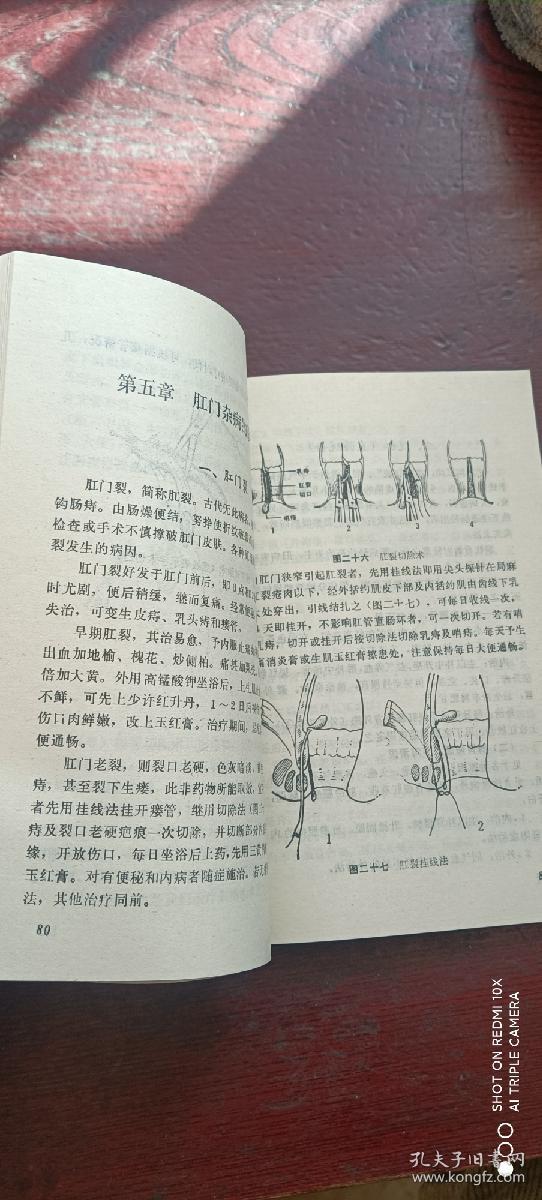 第五章 肛门杂病
一、肛门裂
肛门裂，简称肛裂。古代无此病名，
钩肠痔。由肠燥便结，努挣使折纹破裂
检查或手术不慎撑破肛门皮肤。各种
裂发生的病因。
肛门裂好发于肛门前后，即日
时尤剧，便后稍缓，继而复痛，经常便
失治，可变生皮痔、乳头痔和
早期肛裂，其治易愈，予内服
出血加地榆、槐花、炒侧柏。痛甚
倍加大黄。外用高锰酸钾坐浴后，上
不鲜，可先上少许红升丹，1～2日后
伤口肉鲜嫩，改上玉红膏。治疗期间，
便通畅。
肛门老裂，则裂口老硬，色灰暗淡，
痔，甚至裂下生瘘。此非药物所能取效，
者先用挂线法挂开瘘管，继用切除法（图二十
痔及裂口老硬疤痕一次切除，并切断部分
缘，开放伤口，每日坐浴后上药，先用三
玉红膏。对有便秘和内病者随症施治。若
法，其他治疗同前。
80
乳痔
肛裂
切口
哨痔
1
2
3
4
图二十六 肛裂切除术
肛门狭窄引起肛裂者，先用挂线法即用尖头探针在局麻
裂疮肉以下，经外括约肌皮下部及内括约肌由齿线下乳
处穿出，引线结扎之（图二十七），可每日收线一次，
天即挂开，不影响肛管直肠环者，可一次切开。若有哨
痔，切开或挂开后按切除法切除乳痔及哨痔。每天予生
消炎膏或生肌玉红膏搽患处，注意保持每日大便通畅。
1
2
图二十七 肛裂挂线法
SHOT ON REDMI 10X
AI TRIPLE CAMERA
孔夫子旧书网
www.kongfz.com